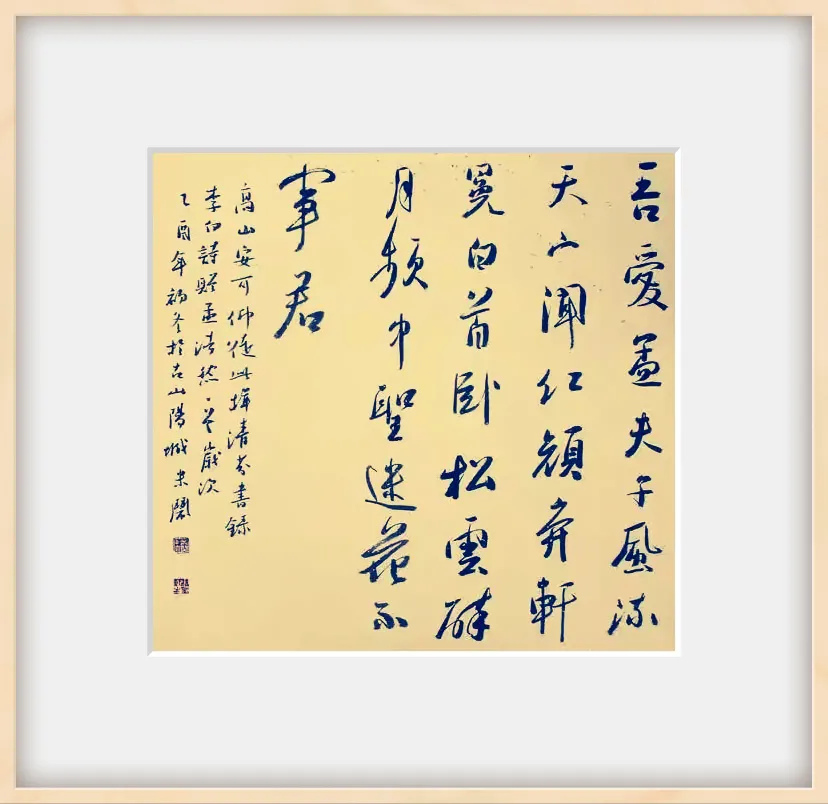 吾愛孟夫子風流
天下聞紅顏弃軒
冕白首臥松雲醉
月頻中聖迷花不
事君
高山安可仰徒此揖清芬書錄
李白詩贈孟浩然歲次
乙酉年初冬於古山陽城